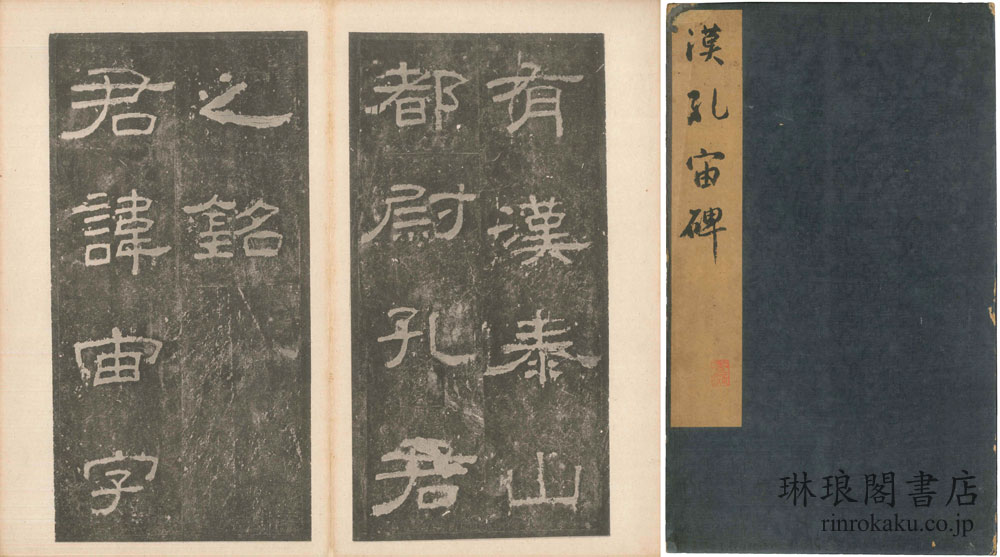 有漢泰山
都尉孔君
之銘
君諱宙字
漢孔宙碑
琳琅閣書店
rinrokaku.co.jp